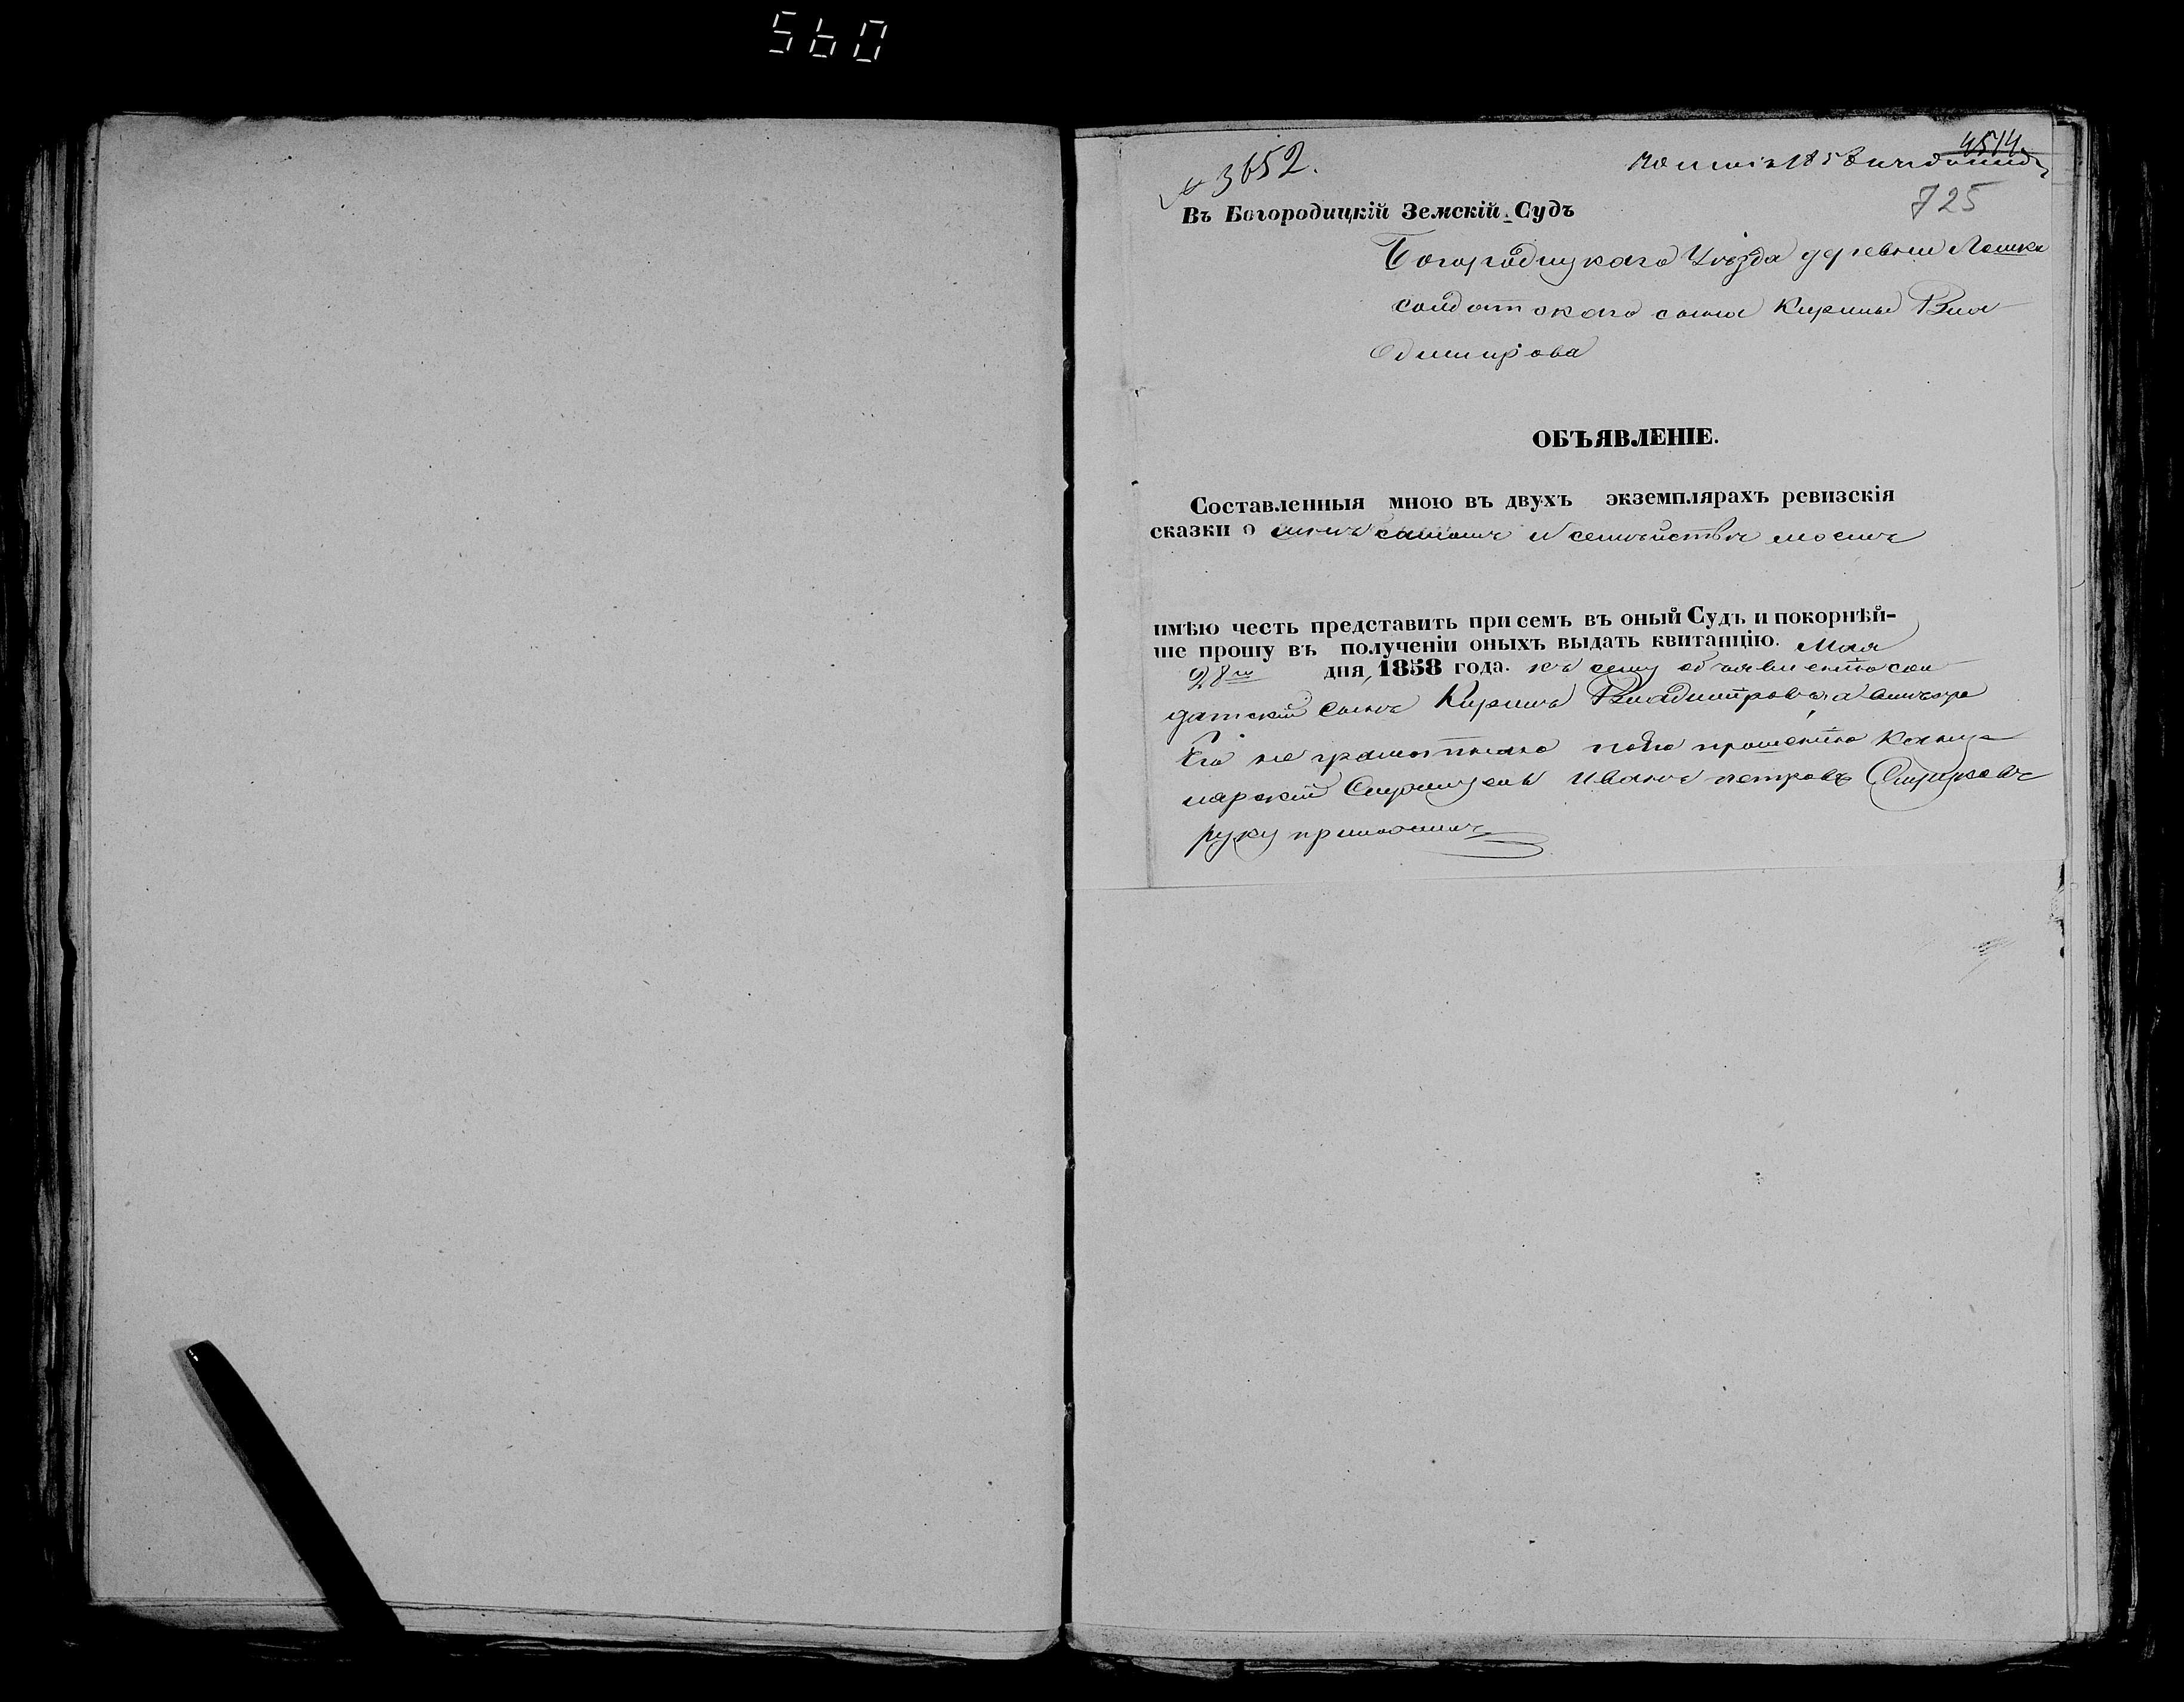 560
№ 3652.
4574
725
Въ Богородицкій Земскій Судъ
Богородицкаго Уѣзда деревни
солдатскаго сына Кирилы Вла
димирова
ОБЪЯВЛЕНІЕ.
Составленныя мною въ двухъ экземплярахъ ревизскія
сказки о мнѣ самомъ и семѣйствѣ моемъ
имѣю честь представить при семъ въ оный Судъ и покорнѣй-
ше прошу въ полученіи оныхъ выдать квитанцію. Мая
28го дня, 1858 года. къ сему объявленію сол
датскій сынъ Кирилъ Владимировъ а вместо
Его не грамотнаго по его прошенію Канце
лярскій Служитель Иванъ петровъ
руку приложилъ